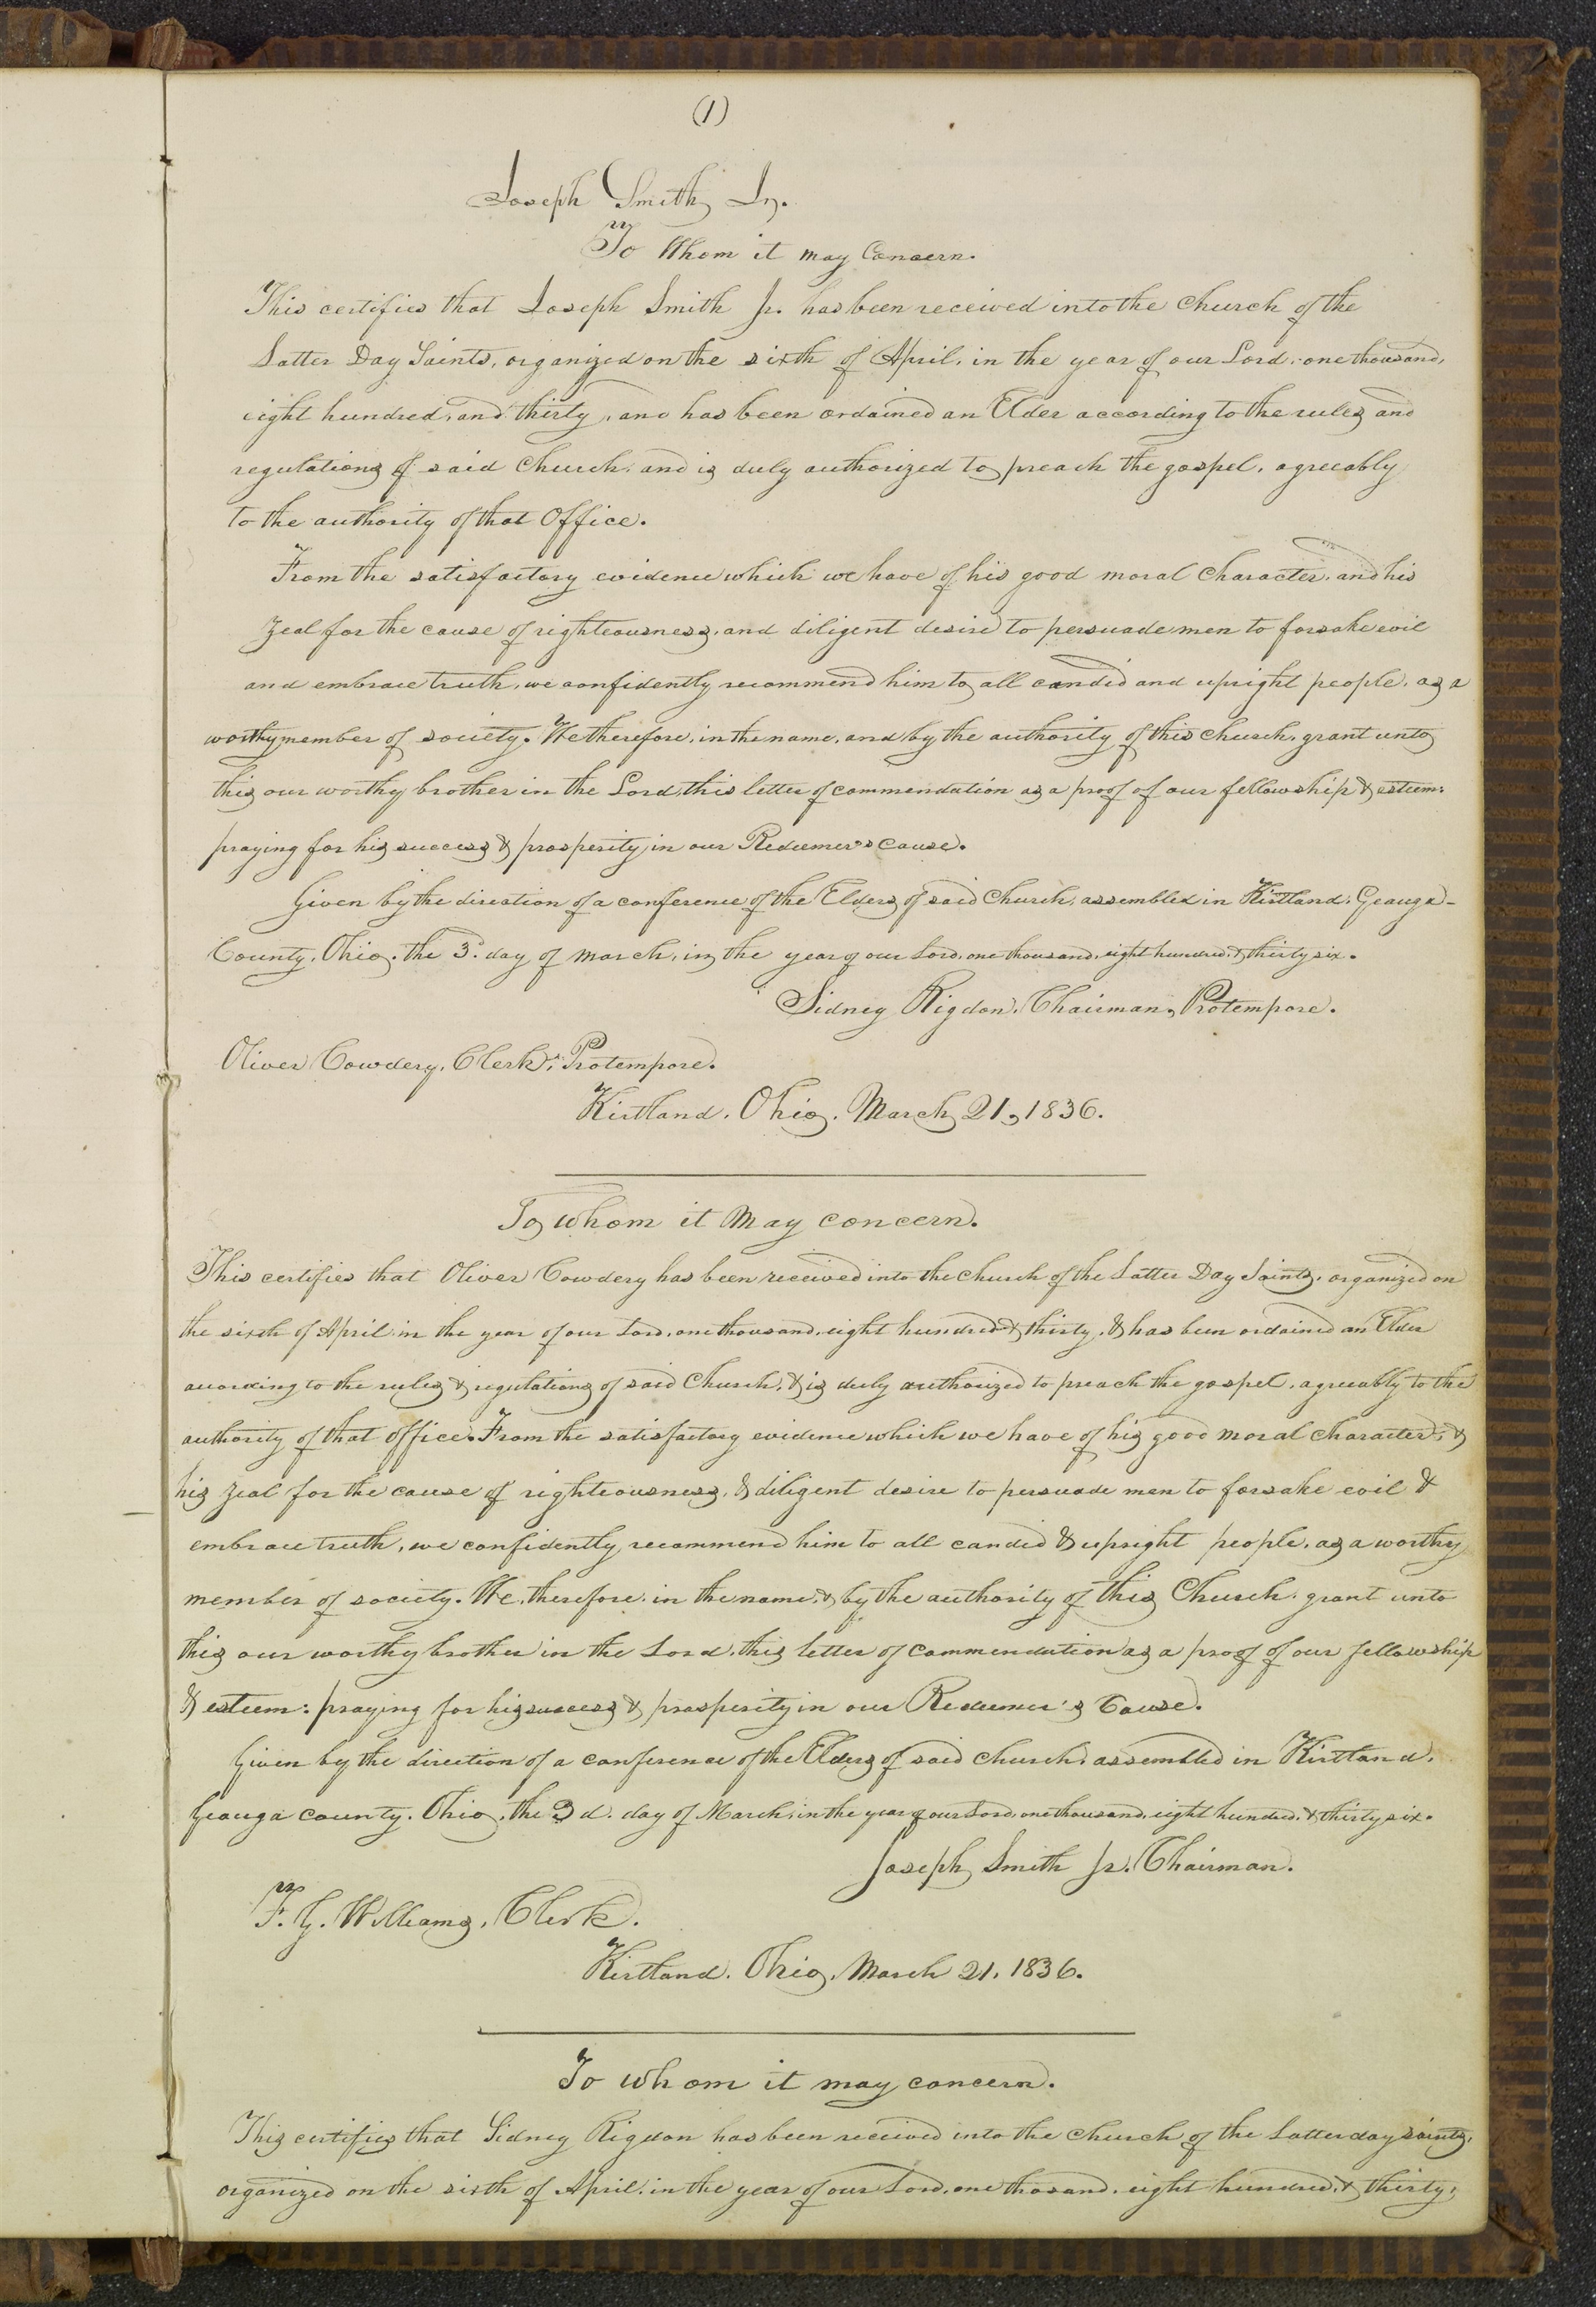 (1)
Joseph Smith Jr.
To Whom it may Concern.
This certifies that Joseph Smith Jr. has been received into the Church of the
Latter Day Saints, organized on the sixth of April, in the year of our Lord, one thousand,
eight hundred, and thirty, and has been ordained an Elder according to the rules and
regulations of said Church, and is duly authorized to preach the gospel, agreeably
to the authority of that Office.
From the satisfactory evidence which we have of his good moral Character, and his
zeal for the cause of righteousness, and diligent desire to persuade men to forsake evil
and embrace truth, we confidently recommend him to all candid and upright people, as a
worthy member of society. We therefore, in the name, and by the authority of this Church, grant unto
this our worthy brother in the Lord, this letter of commendation as a proof of our fellowship & esteem:
praying for his success & prosperity in our Redeemer's Cause.
Given by the direction of a conference of the Elders of said Church, assembled in Kirtland, Geauga-
County, Ohio, the 3d. day of March, in the year of our Lord, one thousand, eight hundred, & thirty six.
Sidney Rigdon, Chairman, Protempore.
Oliver Cowdery, Clerk, Protempore.
Kirtland, Ohio, March 21, 1836.
To whom it May concern.
This certifies that Oliver Cowdery has been received into the Church of the Latter Day Saints, organized on
the sixth of April in the year of our Lord, one thousand, eight hundred & thirty, & has been ordained an Elder
according to the rules & regulations of said Church, & is duly authorized to preach the gospel, agreeably to the
authority of that office. From the satisfactory evidence which we have of his good moral Character, &
his zeal for the cause of righteousness, & diligent desire to persuade men to forsake evil &
embrace truth, we confidently recommend him to all candid & upright people, as a worthy
member of society. We, therefore, in the name, & by the authority of this Church, grant unto
this our worthy brother in the Lord, this letter of commendation as a proof of our fellowship
& esteem: praying for his success & prosperity in our Redeemer's Cause.
Given by the direction of a conference of the Elders of said Church, assembled in Kirtland,
Geauga County, Ohio, the 3d. day of March, in the year of our Lord, one thousand, eight hundred, & thirty six.
Joseph Smith Jr. Chairman.
F. G. Williams, Clerk.
Kirtland, Ohio, March 21, 1836.
To whom it may concern.
This certifies that Sidney Rigdon has been received into the Church of the Latter day saints,
organized on the sixth of April, in the year of our Lord, one thosand, eight hundred, & thirty,